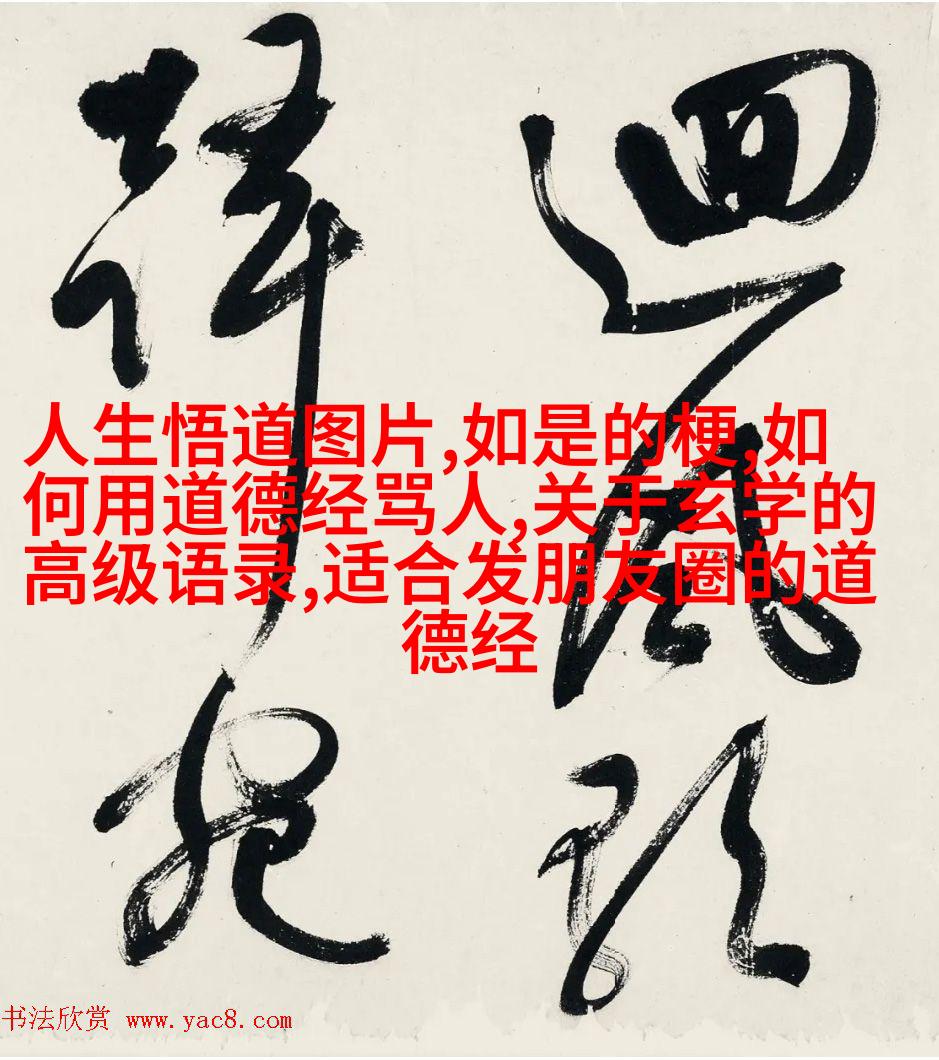 迴風
人生悟道图片,如是的梗,如
何用道德经骂人,关于玄学的
高级语录,适合发朋友圈的道
德经
书法欣赏 www.yac8.com